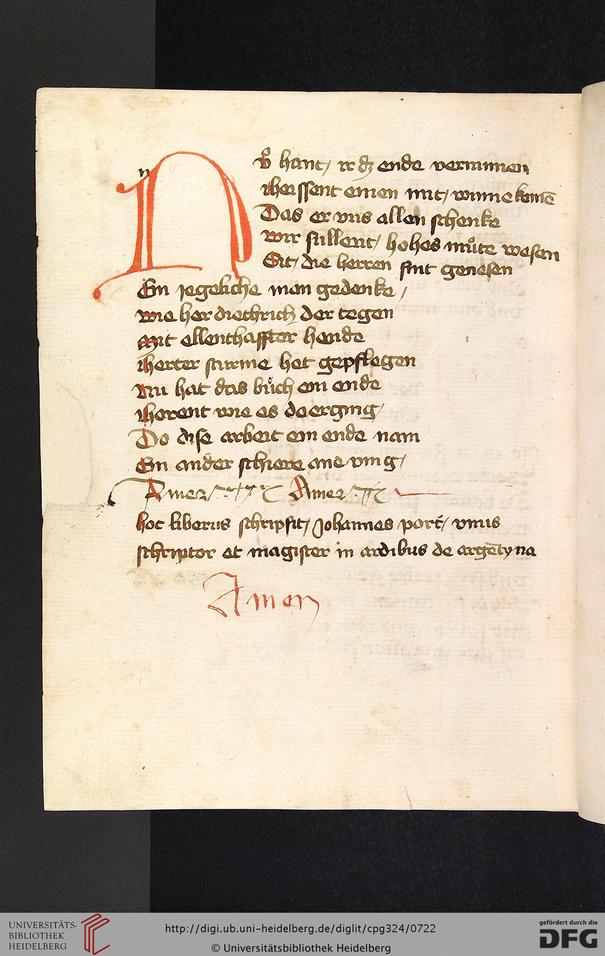 Nv hant, ir dz ende vernumen
heissent einen mit, winne komē
Das er vns allen schenke
wir süllent, hohes můte wesen
Sit, die herren sint genesen
Ein iegeliche man gedenke,
wie her diethrich der tegen
mit ellenthaffter hende
herter sturme het gepflegen
Nu hat das bůch ein ende
horent wie es do erging,
Do dise arbeit ein ende nam
Ein ander schiere ane ving,
Amen Amen
hoc liberus schripsit, Johannes port, vnus
schriptor et magister in ardibus de argētyna
Amen
UNIVERSITÄTS-
BIBLIOTHEK
HEIDELBERG
http://digi.ub.uni-heidelberg.de/diglit/cpg324/0722
© Universitätsbibliothek Heidelberg
gefördert durch die
DFG